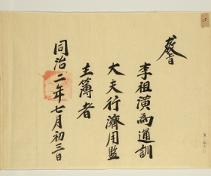 敎旨
李祖演爲通訓
大夫行濟用監
主簿者
同治二年七月初三日